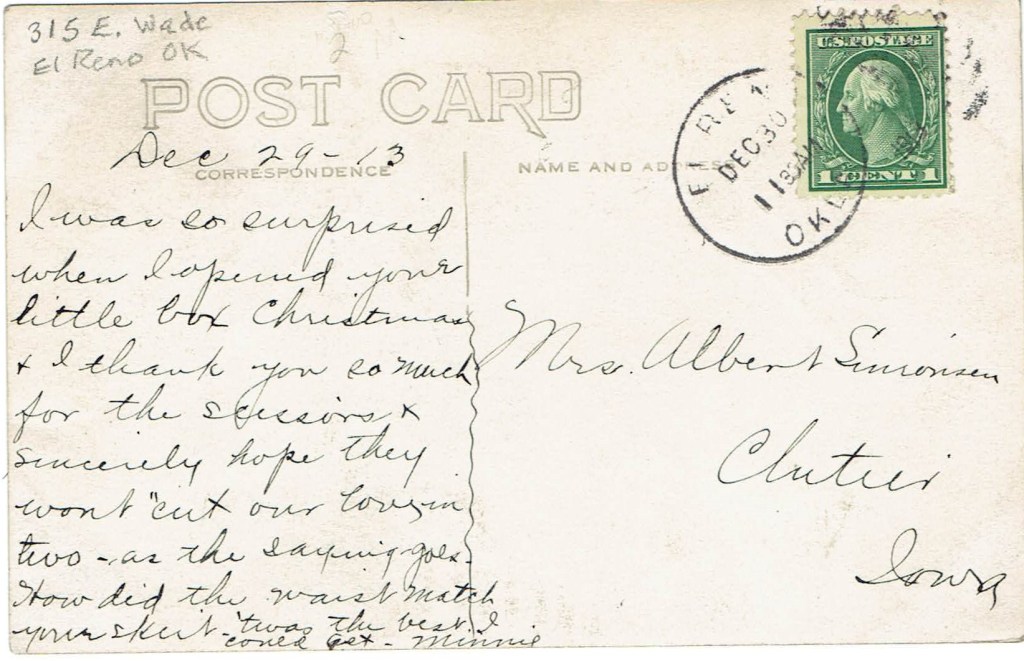 315 E. Wade
El Reno OK
2
POST CARD
U.S. POSTAGE
1 CENT 1
EL RENO
DEC 30
11 30 AM
OKLA
Dec 29-13
CORRESPONDENCE
NAME AND ADDRESS
I was so surprised
when I opened your
little box Christmas
+ I thank you so much
for the scissors +
sincerely hope they
wont "cut our love in
two - as the saying goes.
How did the waist match
your skirt - 'twas the best I
could get - Minnie
Mrs. Albert Simonsen
Clutier
Iowa